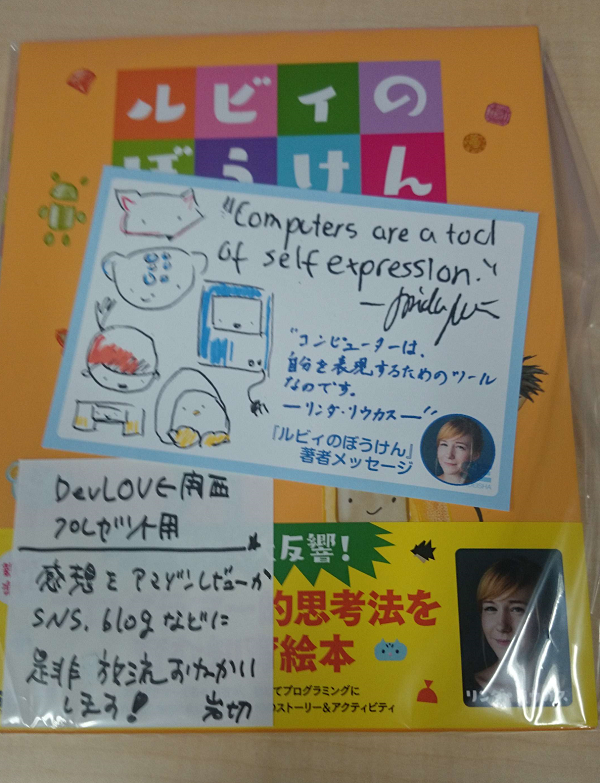 ルビィの
ぼうけん
"Computers are a tool
of self expression."
"コンピューターは、
自分を表現するためのツール
なのです。
ーリンダ・リウカスー"
『ルビィのぼうけん』
著者メッセージ
DevLOVE関西
プレゼント用
感想をアマゾンレビューか
SNS、blogなどに
是非放流おねがい
します! 岩切
反響!
的思考法を
絵本
てプログラミングに
のストーリー&アクティビティ